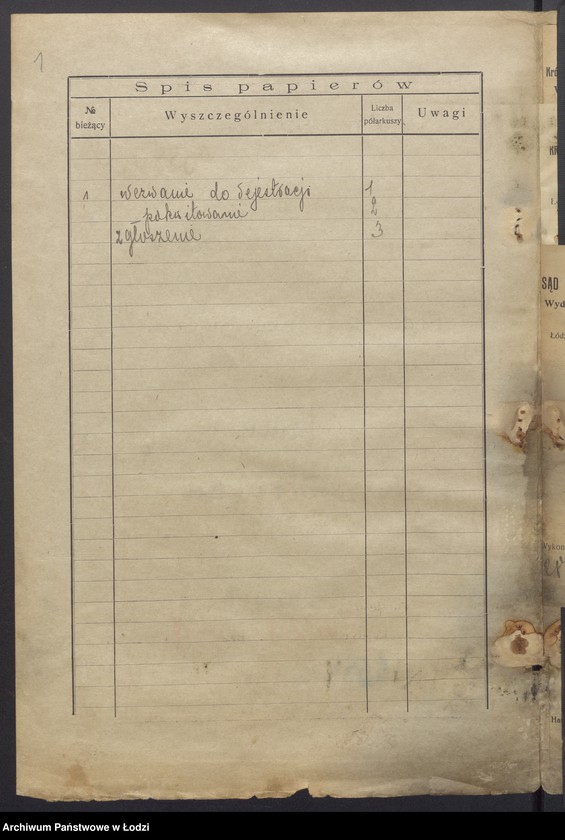 1
Spis papierów
№ bieżący
Wyszczególnienie
Liczba półarkuszy.
Uwagi
1 wezwanie do rejestracji 1
pokwitowanie 2
zgłoszenie 3
Kró
SĄD
Wyd
Łódź
Wykon
Archiwum Państwowe w Łodzi